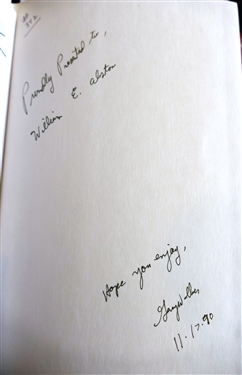 Proudly Presented to,
William E. Alston
Hope you enjoy,
11.17.90